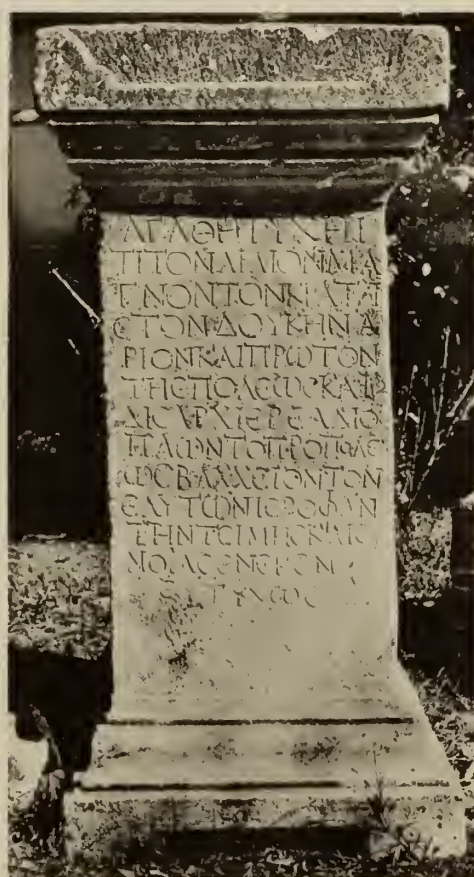 ΑΓΑΘΗΙΤΥΧΗΙ
ΤΙΤΟΝΑΙΛΙΟΝΜΑ
ΓΝΟΝΤΟΝΚΡΑΤΙ
CΤΟΝΔΟΥΚΗΝΑ
ΡΙΟΝΚΑΙΠΡΩΤΟΝ
ΤΗCΠΟΛΕΩCΚΑΙ
ΔΙCΑΡΧΙΕΡΕΑΔΙΟ
ΠΛΩΝΤΟΠΡΟΠΟΛΕ
ΩCΒΑΚΧΕΙΟΝΤΟΝ
ΕΑΥΤΩΝΙΕΡΟΦΑΝ
ΤΗΝΤΕΙΜΗCΚΑΙΕΥ
ΝΟΙΑCΕΝΕΚΕΝ